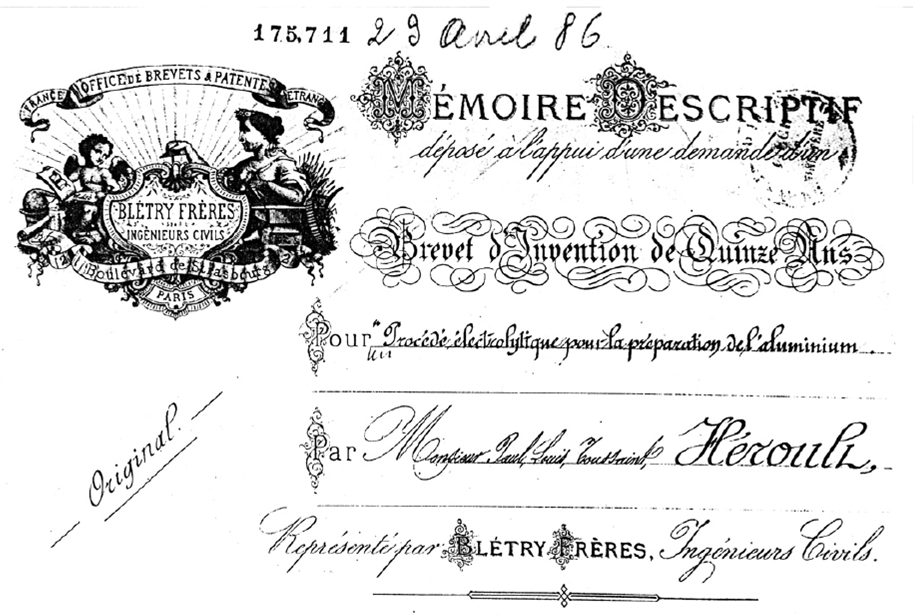 175,711 23 Avril 86
FRANCE OFFICE DE BREVETS & PATENTES ETRANG
BLÉTRY FRÈRES
INGÉNIEURS CIVILS
2 Boulevard de Strasbourg 2
PARIS
MÉMOIRE DESCRIPTIF
déposé à l'appui d'une demande d'un
Brevet d'Invention de Quinze Ans
Pour un "Procédé électrolytique pour la préparation de l'aluminium
Original.
Par Monsieur Paul, Louis, Toussaint, Héroult,
Représenté par BLÉTRY FRÈRES, Ingénieurs Civils.